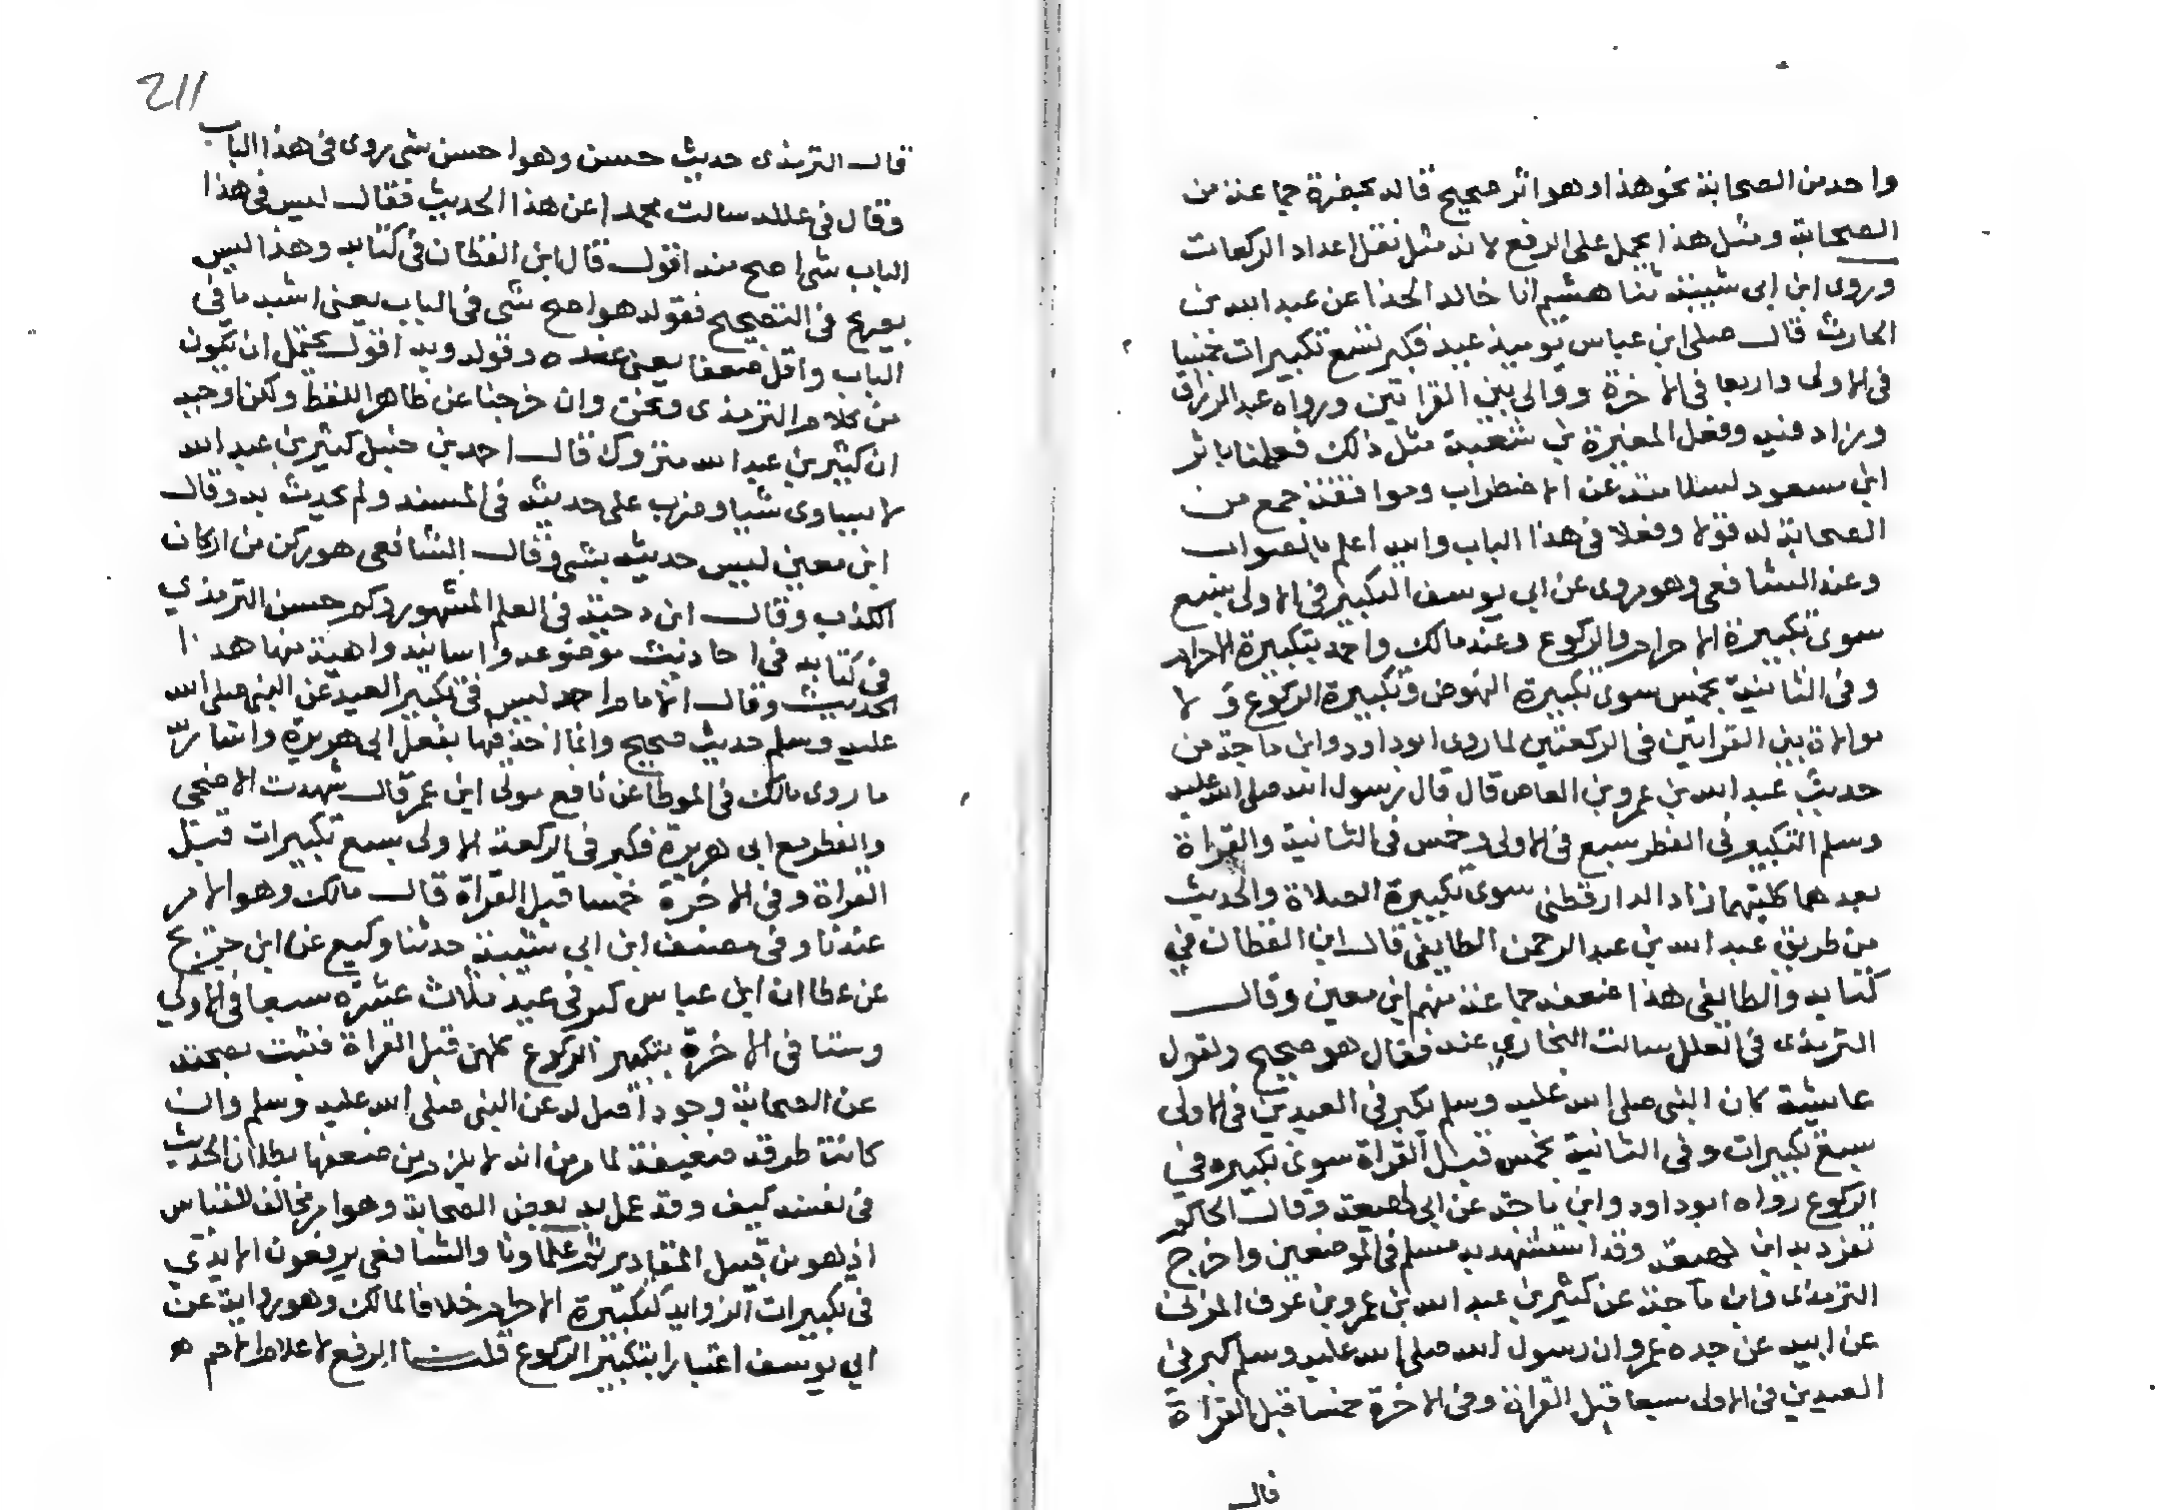 واحد من الصحابة نحو هذا وهو اثر صحيح قاله بحضرة جماعة من
الصحابة ومثل هذا يحمل على الرفع لانه مثل نقل اعداد الركعات
وروى ابن ابي شيبة ثنا هشيم انا خالد الحذا عن عبد الله بن
الحارث قال صلى ابن عباس يوم عيد فكبر تسع تكبيرات خمسا
في الاولى واربعا في الاخرة ووالى بين القراتين ورواه عبد الرزاق
وزاد فيه وفعل المغيرة بن شعبة مثل ذلك فعملنا باثر
ابن مسعود لسلامته عن الاضطراب وموافقة جمع من
الصحابة له قولا وفعلا في هذا الباب والله اعلم بالصواب
وعند الشافعي وهو روى عن ابي يوسف التكبير في الاولى بسبع
سوى تكبيرة الاحرام والركوع وعند مالك واحمد بتكبيرة الاحرام
وفي الثانية بخمس سوى تكبيرة النهوض وتكبيرة الركوع و لا
موالاة بين القراتين في الركعتين لما روى ابو داود وابن ماجة من
حديث عبد الله بن عمرو بن العاص قال قال رسول الله صلى الله عليه
وسلم التكبير في الفطر سبع في الاولى وخمس في الثانية والقراة
بعدهما كلتيهما زاد الدارقطني سوى تكبيرة الصلاة والحديث
من طريق عبد الله بن عبد الرحمن الطايفي قال ابن القطان في
كتابه والطايفي هذا ضعفه جماعة منهم ابن معين وقال
الترمذي في العلل سالت البخاري عنه فقال هو صحيح ولقول
عايشة كان النبي صلى الله عليه وسلم يكبر في العيدين في الاولى
سبع تكبيرات وفي الثانية بخمس قبل القراة سوى تكبيره في
الركوع رواه ابو داود وابن ماجة عن ابن لهيعة وقال الحاكم
تفرد به ابن لهيعة وقد استشهد به مسلم في الموضعين واخرج
الترمذي وابن ماجة عن كثير بن عبد الله بن عمرو بن عوف المزني
عن ابيه عن جده عمرو ان رسول الله صلى الله عليه وسلم كبر في
العيدين في الاولى سبعا قبل القراة وفي الاخرة خمسا قبل القراة
قال
211
قال الترمذي حديث حسن وهو احسن شي روى في هذا الباب
وقال في علله سالت محمدا عن هذا الحديث فقال ليس في هذا
الباب شي اصح منه اقول قال ابن القطان في كتابه وهذا ليس
بصريح في التصحيح فقوله هو اصح شي في الباب يعني اشبه ما في
الباب واقل ضعفا يعني عنده وقوله وبه اقول يحتمل ان يكون
من كلام الترمذي ونحن وان خرجنا عن ظاهر اللفظ ولكن اوجبه
ان كثير بن عبد الله متروك قال احمد بن حنبل كثير بن عبد الله
لا يساوي شيا وضرب على حديثه في المسند ولم يحدث به وقال
ابن معين ليس حديثه بشي وقال الشافعي هو ركن من اركان
الكذب وقال ابن دحية في العلم المشهور وكم حسن الترمذي
في كتابه في احاديث موضوعه واسانيد واهية منها هذا
الحديث وقال الامام احمد ليس في تكبير العيد عن النبي صلى الله
عليه وسلم حديث صحيح وانما اخذ فيها بفعل ابي هريرة واشار
ما روى مالك في الموطا عن نافع مولى ابن عمر قال شهدت الاضحى
والفطر مع ابي هريرة فكبر في الركعة الاولى بسبع تكبيرات قبل
القراة وفي الاخرة خمسا قبل القراة قال مالك وهو الامر
عندنا وفي مصنف ابن ابي شيبة حدثنا وكيع عن ابن جريج
عن عطا ان ابن عباس كبر في عيد ثلاث عشره سبعا في الاولي
وستا في الاخرة بتكبير الركوع كلهن قبل القراة فثبت بصحته
عن الصحابة وجود اصل له عن النبي صلى الله عليه وسلم وان
كانت طرقه ضعيفة لما مر من انه لا يلزم من ضعفها بطلان الحديث
في نفسه كيف وقد عمل به بعض الصحابة وهو امر مخالف للقياس
اذ هو من قبيل المقادير ثم علماونا والشافعي يرفعون الايدي
في تكبيرات الزوايد كتكبيرة الاحرام خلافا لمالك وهو رواية عن
ابي يوسف اعتبارا بتكبير الركوع قلنا الرفع لاعلام الاصم ه